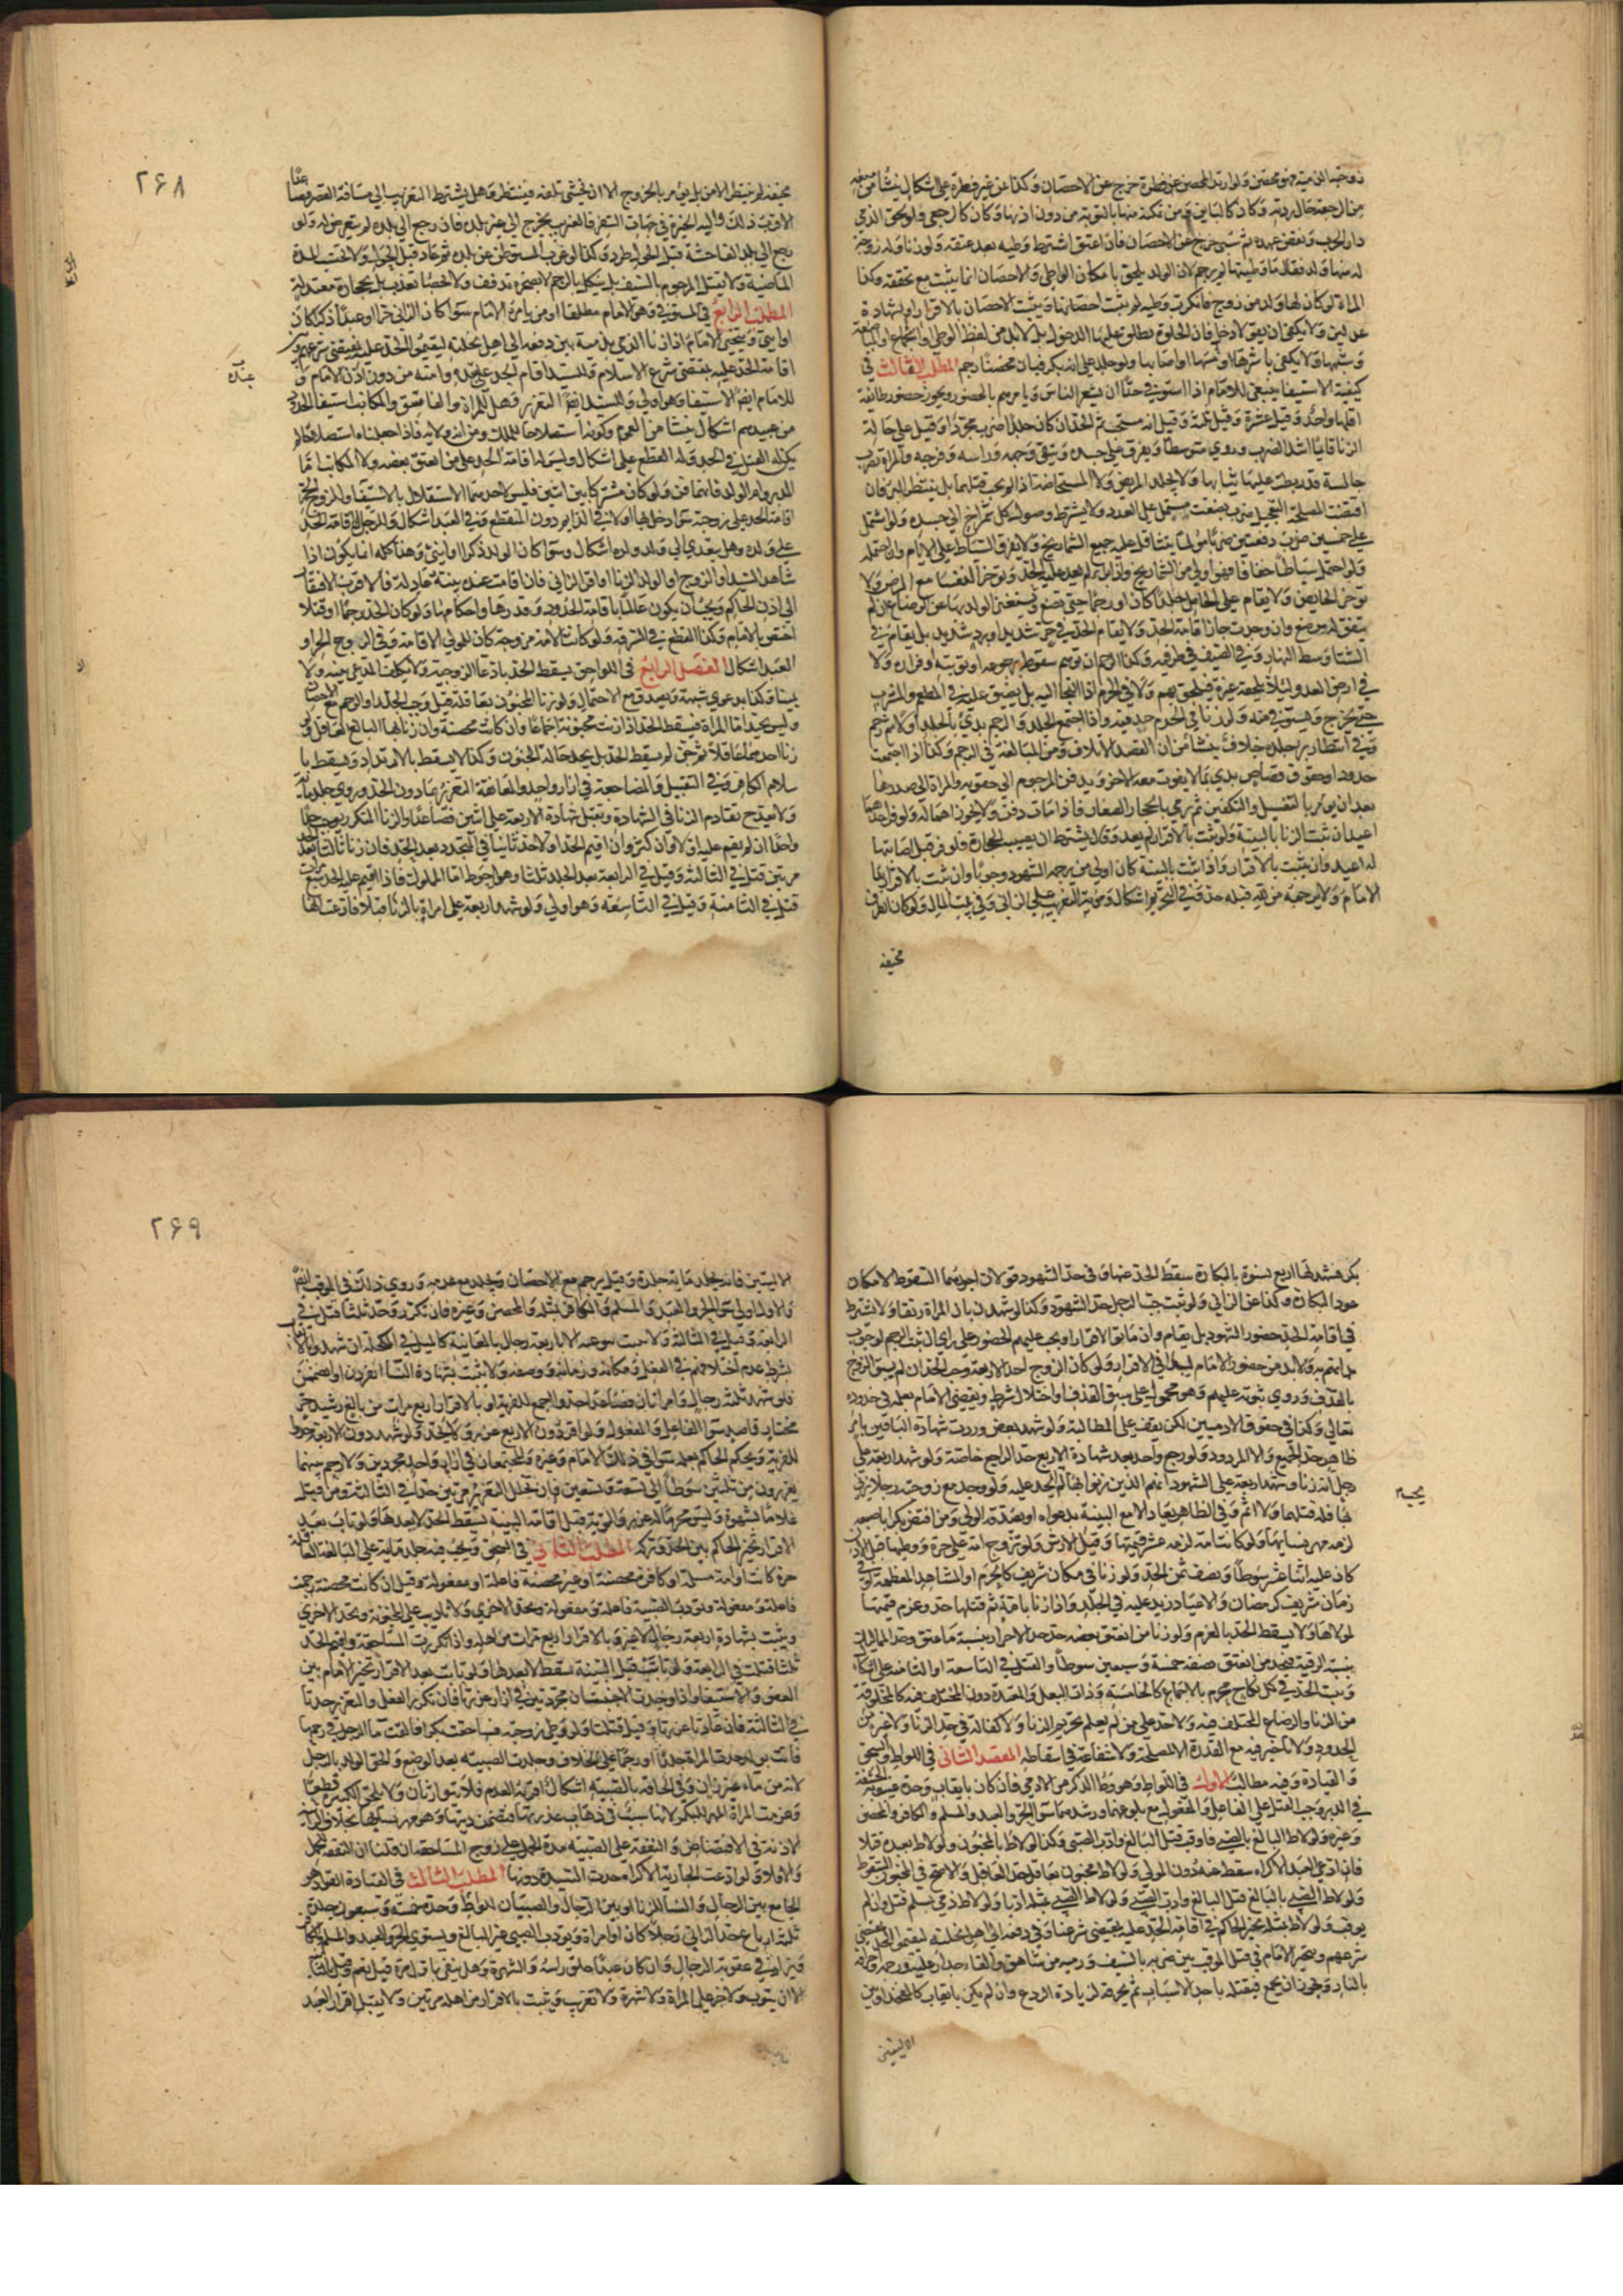 زوجته الذمية فهو محصن ولو ارتد المحصن عن فطرة خرج عن الاحصان وكذا عن غير فطرة على اشكال ينشأ من منعه
من الرجعة حال ردته وكان كالباين ومن تمكنه منها بالتوبة من دون اذنها وكان كالرجعي فلو لحق الذمي
دار الحرب ونقض عهده ثم سبي خرج عن الاحصان فان اعتق اشترط وطيه بعد عتقه ولو زنا وله زوجة
له منها ولد فقال ما وطيتها لم يرجم لان الولد يلحق بامكان الواطي والاحصان انما يثبت مع تحققه وكذا
المراة لو كان لها ولد من زوج فانكرت وطيه لم يثبت احصانها ويثبت الاحصان بالاقرار او بشهادة
عدلين ولا يكفي ان يقولا دخل فان الخلوة يطلق عليها الدخول بل لابد من لفظ الوطي او الجماع او المباضعة
وشبهها ولا يكفي باشرها او مسها او اصابها ولو جلد على انه بكر فبان محصنا رجم المطلب الثالث في
كيفية الاستيفا ينبغي للامام اذا استوفى حدا ان يشعر الناس ويامرهم بالحضور ويجوز حضور طائفة
اقلها واحد وقيل عشرة وقيل ثلثة وقيل انه مستحب ثم الحد ان كان جلدا ضرب مجردا وقيل على حالة
الزنا قايما اشد الضرب وروي متوسطا ويفرق على جسده ويتقى وجهه وراسه وفرجه والمراة تضرب
جالسة قد ربطت عليها ثيابها ولا يجلد المريض ولا المستحاضة اذا لم يجب قتلهما بل ينتظر البرء فان
اقتضت المصلحة التعجيل ضرب بضغث يشتمل على العدد ولا يشترط وصول كل شمراخ الى جسده ولو اشتمل
على خمسين ضرب دفعتين ضربا مولما يتثاقل عليه جميع الشماريخ ولا يفرق السياط على الايام وان احتمله
ولو احتمل سياطا خفافا فهو اولى من الشماريخ واذا برا لم يعد عليه الحد وتوخر النفسا مع المرض ولا
توخر الحايض ولا يقام على الحامل جلدا كان او رجما حتى تضع وتستغني الولد بها عن الرضاع ان لم
يتفق له مرضع وان وجدت جاز اقامة الحد ولا يقام الحد في حر شديد او برد شديد بل يقام في
الشتا وسط النهار وفي الصيف في طرفيه وكذا الرجم ان توهم سقوطه برجوعه او توبته او فراره ولا
في ارض العدو لئلا تلحقه غيرة فيلحق بهم ولا في الحرم اذا التجا اليه بل يضيق عليه في المطعم والمشرب
حتى يخرج ويستوفى منه ولو زنا في الحرم حد فيه واذا اجتمع الجلد والرجم بدي بالجلد اولا ثم رجم
وفي انتظار برء جلده خلاف ينشا من ان القصد الاتلاف ومن المبالغة في الزجر وكذا اذا اجتمعت
حدود او حقوق قصاص بدي بما لا يفوت معه الاخر ويدفن المرجوم الى حقويه والمراة الى صدرها
بعد ان يومر بالتغسيل والتكفين ثم يرمى بالحجار الصغار فاذا مات دفن ولا يجوز اهماله ولو فر احدهما
اعيد ان ثبت الزنا بالبينة ولو ثبت بالاقرار لم يعد وقيل يشترط ان يصيبه الحجارة فلو فر قبل اصابتها
له اعيد وان يثبت بالاقرار واذا ثبت بالبينة كان اولى من يرجمه الشهود وجوبا وان ثبت بالاقرار بدا
الامام ولا يرجمه من لله قبله حد وفي التحريم اشكال ومونة التغريب على الزاني او في بيت المال ولو كان الطريق
مخيفه
٢٦٨
مخيفة لم ينتظر الامن بل يومر بالخروج الا ان يخشى تلفه فينتظر وهل يشترط التغريب الى مسافة القصر فصاعدا
الاقرب ذلك واليه الخيرة في جهات السفر فالغريب يخرج الى غير بلده فان رجع الى بلده لم يتعرض له ولو
رجع الى بلد الفاحشة قبل الحول طرد وكذا لو غرب المستوطن عن بلده ثم عاد قبل الحول ولا تحتسب المدة
الماضية ولا يقتل المرجوم بالسيف بل ينكل بالرجم لا بصخرة تدفف ولا بحصا تعذب بل بحجارة معتدلة
المطلب الرابع في المستوفي وهو الامام مطلقا او من يامره الامام سوا كان الزاني حرا او عبدا ذكرا كان
او انثى ويتخير الامام اذا زنا الذمي بذمية بين دفعه الى اهل نحلته ليقيموا الحد عليه بمقتضى شرعهم وبين
اقامة الحد عليه بمقتضى شرع الاسلام وللسيد اقامة الحد على عبده وامته من دون اذن الامام و
للامام ايضا الاستيفا وهو اولى وللسيد ايضا التعزير وهل للمراة والفاسق والمكاتب استيفا الحدود
من عبيدهم اشكال ينشا من العموم وكونه استصلاحا للملك ومن انه ولاية فاذا جعلناه استصلاحا لم
يكن له القتل في الحد وله القطع على اشكال وليس له اقامة الحد على من انعتق بعضه ولا المكاتب اما
المدبر وام الولد فانهما قن ولو كان مشتركا بين اثنين فليس لاحدهما الاستقلال بالاستيفا وللزوج الحر
اقامة الحد على زوجته سوا دخل بها او لا في الدايم دون المنقطع وفي العبد اشكال وللرجل اقامة الحد
على ولده وهل يتعدى الى ولد ولده اشكال وسوا كان الولد ذكرا او انثى وهذا كله انما يكون اذا
شاهد السيد او الزوج او الوالد الزنا او اقر الزاني فان اقامت عنده بينة عادلة فالاقرب الافتقار
الى اذن الحاكم ويجب ان يكون عالما باقامة الحدود وقدرها واحكامها ولو كان الحد رجما او قتلا
اختص بالامام وكذا القطع في السرقة ولو كانت الامة مزوجة كان للمولى الاقامة وفي الزوج الحر او
العبد اشكال الفصل الرابع في اللواحق يسقط الحد بادعا الزوجية ولا يكلف المدعي بينة ولا
يمينا وكذا بدعوى شبهة ويصدق مع الاحتمال ولو زنا المجنون بعاقلة قيل وجب الجلد او الرجم مع الاحصان
وليس بجيد اما المراة فيسقط الحد اذا زنت مجنونة اجماعا وان كانت محصنة وان زنا بها البالغ العاقل ولو
زنا احدهما عاقلا ثم جن لم يسقط الحد بل يحد حالة الجنون وكذا لا يسقط بالارتداد ويسقط با
سلام الكافر وفي التقبيل والمضاجعة في ازار واحد والمعانقة التعزير بما دون الحد وروي جلد ماية
ولا يقدح تقادم الزنا في الشهادة وتقبل شهادة الاربعة على اثنين فصاعدا والزنا المتكرر يوجب حدا
واحدا ان لم يقم عليه اولا وان كثر وان اقيم الحد اولا حد ثانيا في المتجدد بعد الحد فان زنا ثالثا بعد
مرتين قتل في الثالثة وقيل في الرابعة بعد الجلد ثلثا وهو احوط اما المملوك فاذا اقيم عليه الحد سبع مرات
قتل في الثامنة وقيل في التاسعة وهو اولى ولو شهد اربعة على امراة بالزنا قبلا فادعت انها
بكر فشهد لها اربع نسوة بالبكارة سقط الحد عنها وفي حد الشهود قولان اجودهما السقوط لامكان
عود البكارة وكذا عن الزاني ولو ثبت جب الرجل حد الشهود وكذا لو شهدن بان المراة رتقا ولا يشترط
في اقامة الحد حضور الشهود بل يقام وان ماتوا او غابوا ويجب عليهم الحضور على راي ان ثبت الرجم لوجوب
بداتهم به ولابد من حضور الامام ليبدا في الاقرار ولو كان الزوج احد الاربعة وجب الحد ان لم يسبق الزوج
بالقذف وروي ثبوته عليهم وهو محمول على سبق القذف او اختلال شرط ويقضي الامام بعلمه في حدوده
تعالى وكذا في حقوق الادميين لكن يقف على المطالبة ولو شهد بعض وردت شهادة الباقين بامر
ظاهر حد الجميع والا المردود ولو رجع واحد بعد شهادة الاربع حد الراجع خاصة ولو شهد اربعة على
رجل انه زنا وشهد اربعة على الشهود انهم الذين زنوا بها لم يحد عليه ولو وجد مع زوجته رجلا يزني
بها فله قتلهما ولا اثم وفي الظاهر يقاد الا مع البينة بدعواه او يصدقه الولي ومن افتض بكرا باصبعه
لزمه مهر نسايها ولو كانت امة لزمه عشر قيمتها وقيل الارش ولو تزوج امة على حرة ووطيها قبل الاذن
كان عليه اثنا عشر سوطا ونصف ثمن الحد ولو زنا في مكان شريف كالحرم او المشاهد المعظمة او في
زمان شريف كرمضان والاعياد زيد عليه في الجلد واذا زنا بامة ثم قتلها حد وغرم قيمتها
لمولاها ولا يسقط الحد بالغرم ولو زنا من انعتق بعضه حد حد الاحرار بنسبة ما عتق وحد المماليك
بنسبة الرقية فيحد من انعتق نصفه خمسة وسبعين سوطا والقتل في التاسعة او الثامنة على اشكال
وثبت الحد في كل نكاح محرم بالاجماع كالخامسة وذات البعل والمعتدة دون المختلف فيه كالمخلوقة
من الزنا والرضاع المختلف فيه ولا حد على من لم يعلم تحريم الزنا ولا كفالة في حد الزنا ولا غيره من
الحدود ولا تاخير فيه مع القدرة الا لمصلحة ولا شفاعة في اسقاطه المقصد الثاني في اللواط والسحق
والقيادة وفيه مطالب الاول في اللواط وهو وطا الذكر من الادمي فان كان بايقاب وحده غيبوبة الحشفة
في الدبر وجب القتل على الفاعل والمفعول مع بلوغهما ورشدهما سوا الحر والعبد والمسلم والكافر والمحصن
وغيره ولو لاط البالغ بالصبي فاوقب قتل البالغ وادب الصبي وكذا لو لاط بالمجنون ولو لاط بعبده قتلا
فان ادعى العبد الاكراه سقط عنه دون المولى ولو لاط مجنون بعاقل حد العاقل والاصح في المجنون السقوط
ولو لاط الصبي بالبالغ قتل البالغ وادب الصبي ولو لاط الصبي بمثله ادبا ولو لاط ذمي بمسلم قتل وان لم
يوقب ولو لاط بمثله تخير الحاكم في اقامة الحد عليه بمقتضى شرعنا وفي دفعه الى اهل نحلته ليقيموا الحد بمقتضى
شرعهم ويتخير الامام في قتل الموقب بين ضربه بالسيف ورميه من شاهق والقاء جدار عليه ورجمه واحراقه
بالنار ويجوز ان يجمع فيقتله باحد الاسباب ثم يحرقه لزيادة الردع وان لم يكن بايقاب كالتفخيذ او بين
الاليتين
٢٦٩
الاليتين فانه يجلد ماية جلدة وقيل يرجم مع الاحصان ويجلد مع عدمه وروي ذلك في الموقب ايضا
والاول اولى سوا الحر والعبد والمسلم والكافر بمثله والمحصن وغيره فان تكرر وحد ثلثا قتل في
الرابعة وقيل في الثالثة ولا يثبت موجبه الا باربعة رجال بالمعاينة كالميل في المكحلة ان شهدوا بالايقاب
بشرط عدم اختلافهم في الفعل ومكانه وزمانه ووصفه ولا يثبت بشهادة النسا انفردن او انضممن
فلو شهد ثلثة رجال وامراتان فصاعدا حد الجميع للفرية او بالاقرار اربع مرات من بالغ رشيد حر
مختار قاصد سوا الفاعل والمفعول ولو اقر دون الاربع عزر ولا يحد ولو شهد دون الاربعة حدوا
للفرية ويحكم الحاكم بعلمه سوا في ذلك الامام وغيره والمجتمعان في ازار واحد مجردين ولا رحم بينهما
يعزرون من ثلثين سوطا الى تسعة وتسعين فان تخلل التعزير مرتين حدا في الثالثة ومن قبل
غلاما بشهوة وليس محرما له عزر ولو تاب قبل اقامة البينة سقط الحد لا بعدها ولو تاب بعد
الاقرار تخير الحاكم بين الحد وتركه المطلب الثاني في السحق ويجب فيه جلد ماية على البالغة العاقلة
حرة كانت او امة مسلمة او كافرة محصنة او غير محصنة فاعلة او مفعولة وقيل ان كانت محصنة رجمت
فاعلة ومفعولة وتودب الصبية فاعلة ومفعولة وتحد الاخرى ولا تاديب على المجنونة وتحد الاخرى
ويثبت بشهادة اربعة رجال لا غير وبالاقرار اربع مرات من اهله واذا تكررت المساحقة واقيم الحد
ثلثا قتلت في الرابعة ولو تابت قبل البينة سقط لا بعدها ولو تابت بعد الاقرار تخير الامام بين
العفو والاستيفا واذا وجدت الاجنبيتان مجردتين في ازار عزرتا فان تكرر الفعل والتعزير حدتا
في الثالثة فان عادتا عزرتا وقيل قتلتا ولو وطي زوجته فساحقت بكرا فالقت ماء الرجل في رحمها
فاتت بولد حدت المراة جلدا او رجما على الخلاف وجلدت الصبية بعد الوضع ولحق الولد بالرجل
لانه من ماء غير زان وفي الحاقه بالصبية اشكال اقربه العدم فلا يتوارثان ولا يلحق بالكبيرة قطعا
وغرمت المراة المهر للبكر لانها سبب في ذهاب عذرتها فتضمن ديتها وهو مهر نسايها بخلاف الزانية
لاذنه في الافتضاض والنفقة على الصبية مدة الحمل على زوج المساحقة ان قلنا ان النفقة للحمل
والا فلا ولو ادعت الجارية الاكراه حدت السيدة دونها المطلب الثالث في القيادة القواد هو
الجامع بين الرجال والنسا للزنا او بين الرجال والصبيان للواط وحده خمسة وسبعون جلدة
ثلثة ارباع حد الزاني رجلا كان او امراة ويودب الصبي غير البالغ ويستوي الحر والعبد والمسلم والكافر
ويزاد في عقوبة الرجال وان كان عبدا حلق راسه والشهرة وهل ينفى باول مرة قيل نعم وقيل بالثانية
الا ان يتوب ولا جز على المراة ولا شهرة ولا تغريب ويثبت بالاقرار من اهله مرتين ولا يقبل اقرار العبد